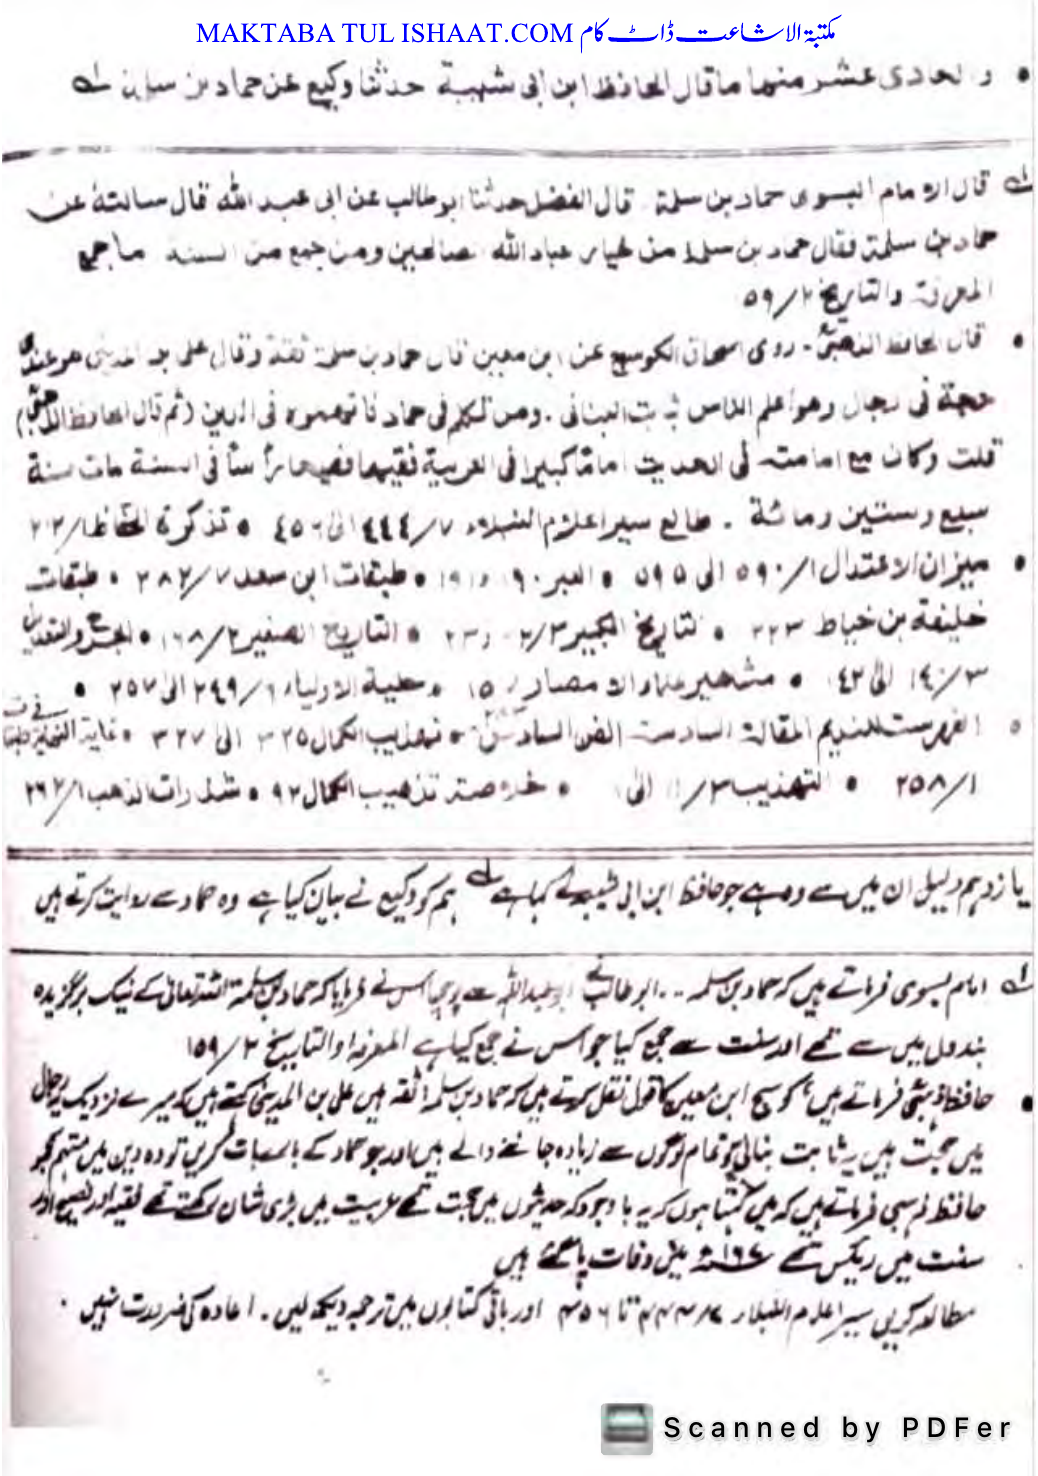 MAKTABA TUL ISHAAT.COM مکتبۃ الاشاعت ڈاٹ کام
• والحادی عشر منهما ما قال الحافظ ابن ابی شیبة حدثنا وکیع عن حماد بن سلمة لہ
لہ قال الامام البسوی حماد بن سلمة قال الفضل حدثنا ابو طالب عن ابی عبد الله قال سالته عن
حماد بن سلمة فقال حماد بن سلمة من خیار عباد الله الصالحین ومن جمع من السنة ما جمع
المعرفة والتاریخ ٢/ ٥٩
• قال الحافظ الذهبی۔ روی اسحاق الکوسج عن ابن معین قال حماد بن سلمة ثقة وقال علی بن المدینی هو عندی
حجة فی رجال وهو اعلم الناس بثابت البنانی . ومن تکلم فی حماد فاتهموه فی الدین (ثم قال الحافظ الذهبی)
قلت وکان مع امامته فی الحدیث اماما کبیرا فی العربیة فقیها فصیحا رأسا فی السنة مات سنة
سبع وستین ومائة . طالع سیر اعلام النبلاء ٧/ ٤٤٤ الی ٤٥٦ • تذکرة الحفاظ
• میزان الاعتدال ١/ ٥٩٠ الی ٥٩٥ • العبر • طبقات ابن سعد ٧/ ٢٨٢ • طبقات
خلیفة بن خیاط ٢٢٣ • التاریخ الکبیر ٣/ • التاریخ الصغیر ٢/ ١٦٨ • الجرح والتعدیل
٣/ ١٤٠ الی ١٤٢ • مشاهیر علماء الامصار • حلیة الاولیاء ٦/ ٢٤٩ الی ٢٥٧ •
الفهرست للندیم المقالة السادسة الفن السادس • تهذیب الکمال ٣٢٥ الی ٣٢٧ • غایة النهایة فی طبقات
١/ ٢٥٨ • التهذیب ٣/ ١١ الی • خلاصة تذهیب الکمال ٩٢ • شذرات الذهب ١/ ٢٦٢
یازدہم دلیل ان میں سے وہ ہے جو حافظ ابن ابی شیبہ نے کہا ہے لہ ہم کو وکیع نے بیان کیا ہے وہ حماد سے روایت کرتے ہیں
لہ امام بسوی فرماتے ہیں کہ حماد بن سلمہ ۔۔ ابو طالب نے ابو عبداللہ سے پوچھا اس نے فرمایا کہ حماد بن سلمۃ اللہ تعالیٰ کے نیک برگزیدہ
بندوں میں سے تھے اور سنت سے جمع کیا جو اس نے جمع کیا ہے المعرفۃ والتاریخ ٢/ ١٥٩
• حافظ ذہبی فرماتے ہیں، کوسج ابن معین کا قول نقل کرتے ہیں کہ حماد بن سلمہ ثقہ ہیں علی بن المدینی کہتے ہیں کہ میرے نزدیک یہ رجال
میں حجت ہیں یہ ثابت بنانی کو تمام لوگوں سے زیادہ جاننے والے ہیں اور جو حماد کے بارے بات کریں تو وہ دین میں متہم
حافظ ذہبی فرماتے ہیں کہ میں کہتا ہوں کہ یہ باوجودکہ حدیثوں میں حجت تھے عربیت میں بڑی شان رکھتے تھے فقیہ اور فصیح اور
سنت میں رئیس تھے ١٦٧ھ میں وفات پا گئے ہیں
مطالعہ کریں سیر اعلام النبلاء ٧/ ٤٤٤ تا ٤٥٦ اور باقی کتابوں میں ترجمہ دیکھ لیں۔ اعادہ کی ضرورت نہیں۔
Scanned by PDFer